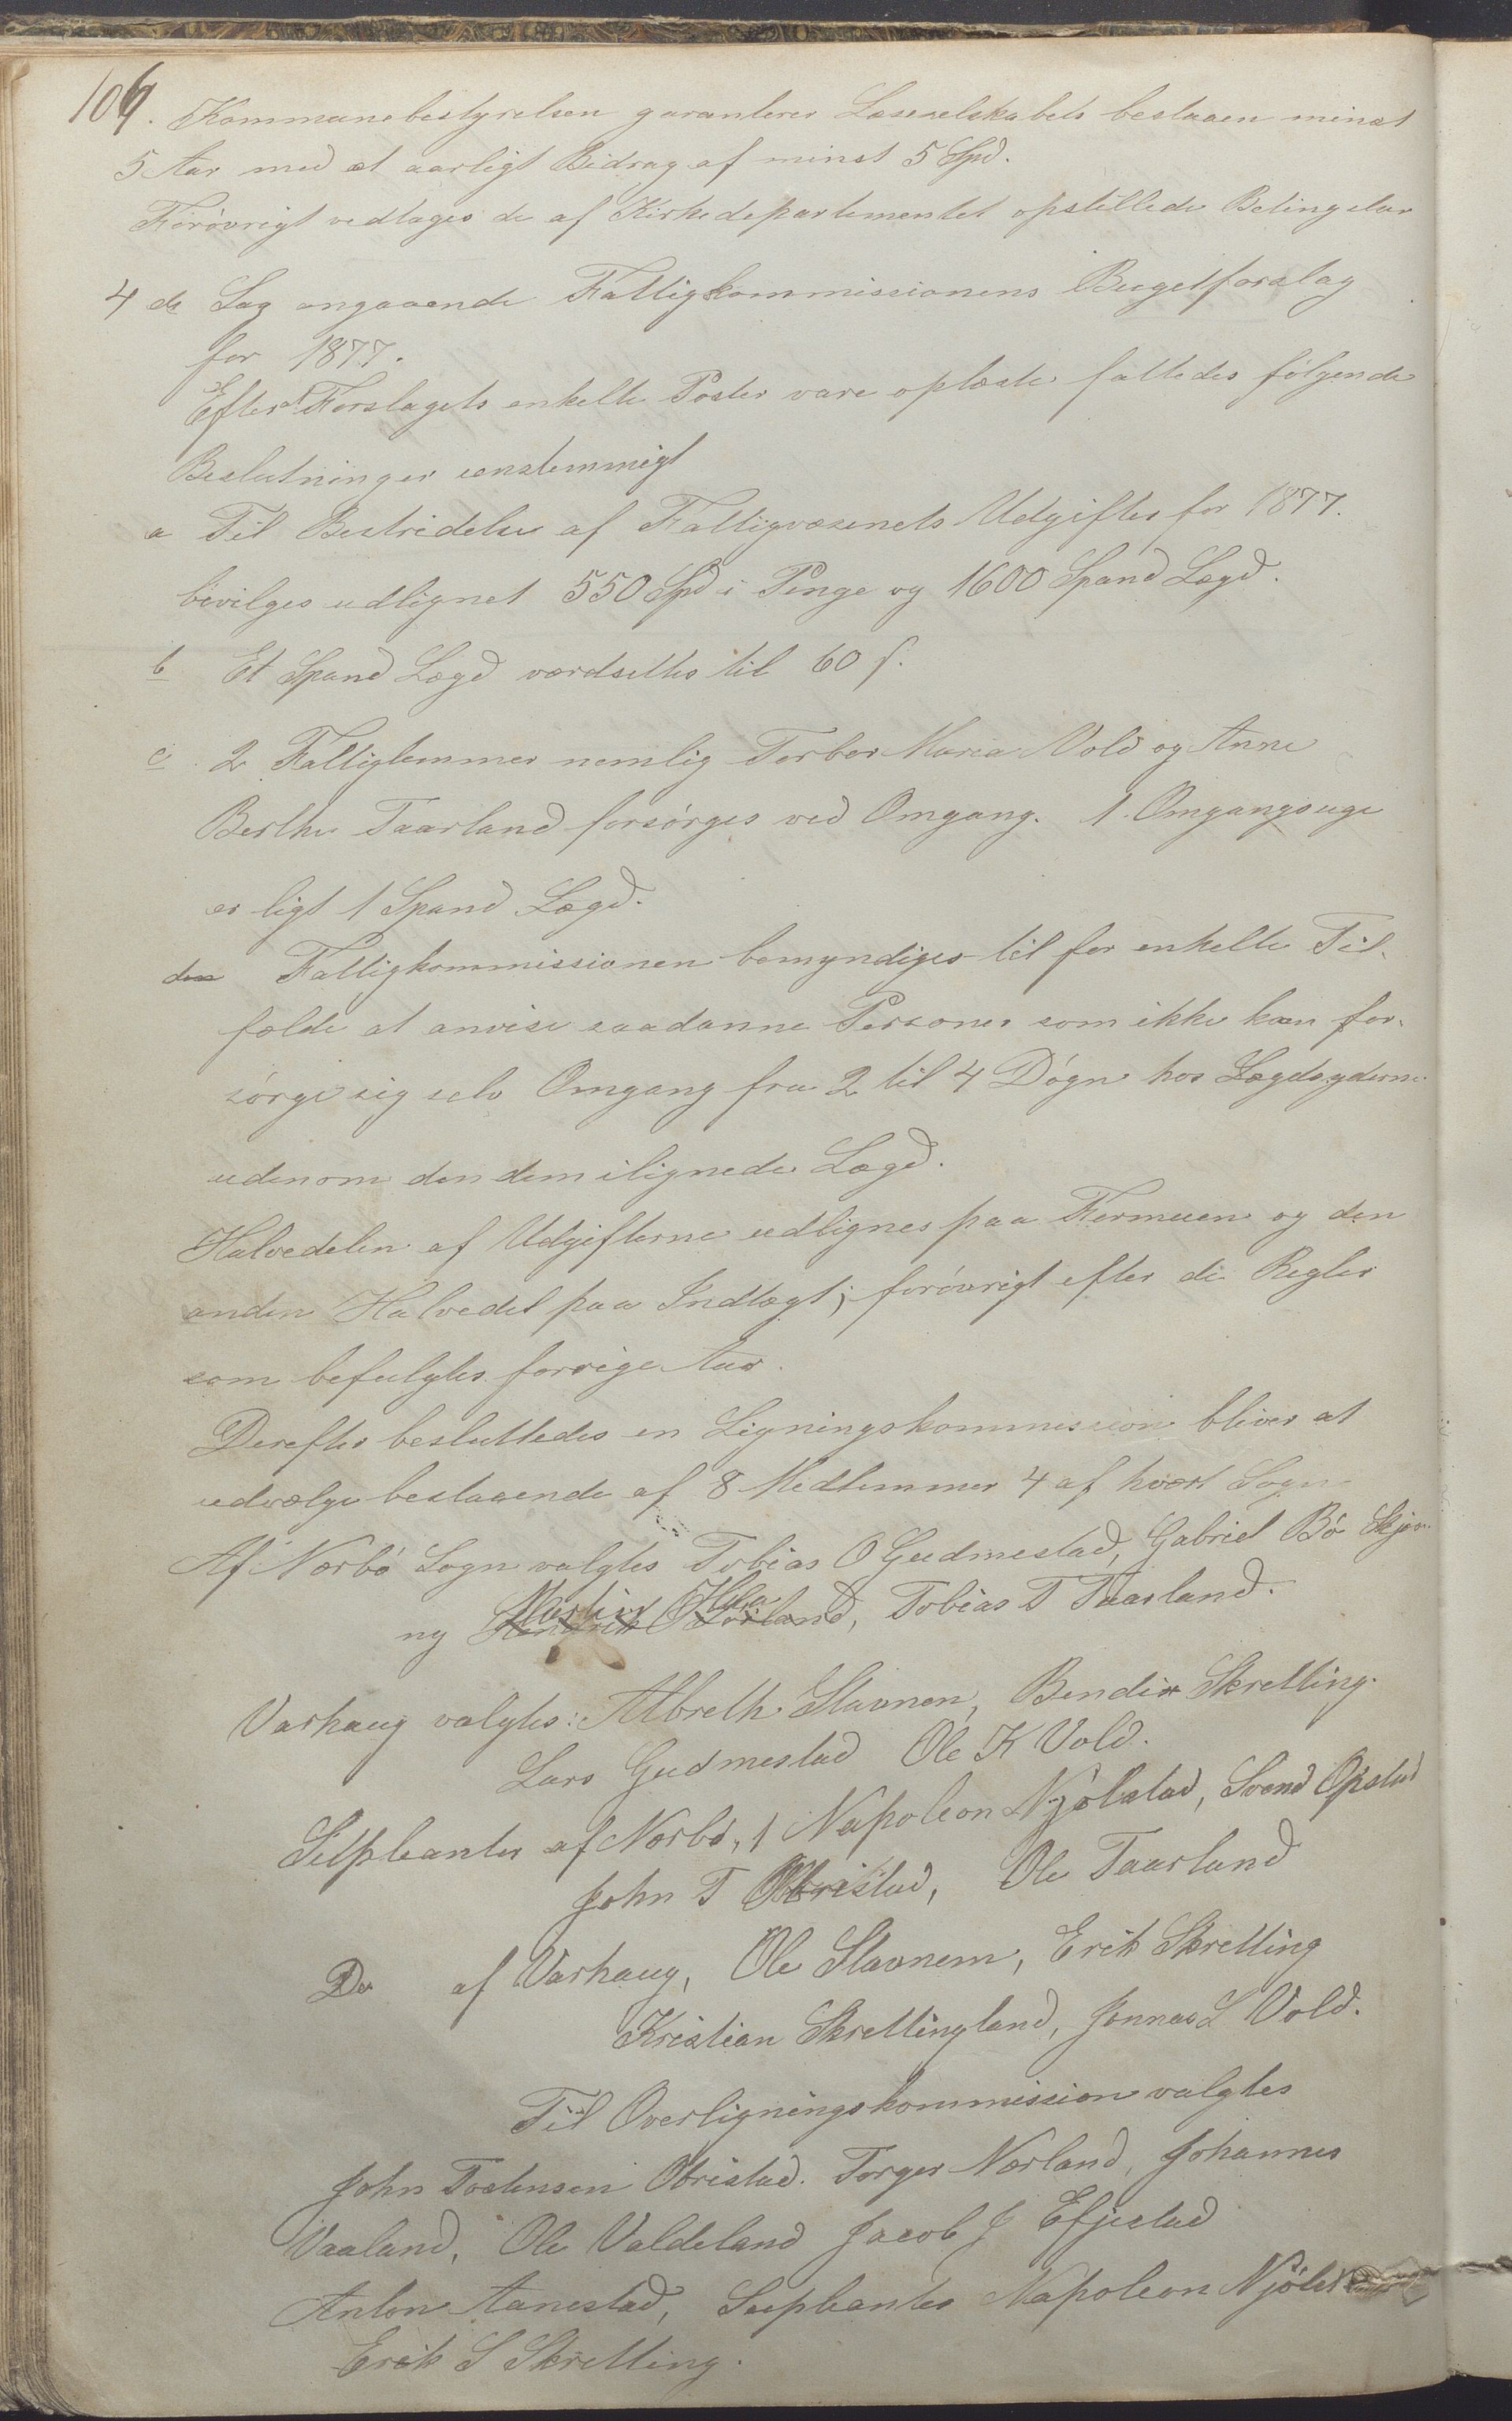 106
4. Kommunebestyrelsen garanterer Læseselskabets bestaaen minst
5 Aar med et aarligt Bidrag af minst 5 Spd.
Forøvrigt vedtages de af Kirkedepartementet opstillede Betingelser
4 de Sag angaaende Fattigkommissionens Bugetforslag
for 1877.
Efter Forslagets enkelte Poster vare oplæste fattedes følgende
Beslutninger enstemmigt
a Til Bestridelse af Fattigvæsenets Udgifter for 1877.
bevilges udlignet 550 Spd i Penge og 1600 Spand Lægd.
b Et Spand Lægd værdsettes til 60 s.
c 2 Fattiglemmer nemlig Torbor Maria Vold og Anne
Berthe Taarland forsørges ved Omgang. 1 Omgangsuge
er ligt 1 Spand Lægd.
Fattigkommissionen bemyndiges til for enkelte Til-
fælde at anvise saadanne Personer som ikke kan for-
sørge sig selv Omgang fra 2 til 4 Døgn hos Lægdsyderne
udenom den dem ilignede Lægd.
Halvedelen af Udgifterne udlignes paa Formuen og den
anden Halvedel paa Indtægt; forøvrigt efter de Regler
som befulgtes forrige Aar.
Derefter besluttedes en Ligningskommission bliver at
udvælge bestaaende af 8 Medlemmer 4 af hvert Sogn
Af Nærbø Sogn valgtes Tobias O Gudmestad, Gabriel Bø Skjær-
ny Martin Hæra, Tobias T Taarland.
Varhaug valgtes: Albreth Stavnem, Bendix Skretting.
Lars Gudmestad Ole K Vold.
Supleanter af Nærbø, 1 Napoleon Njølstad, Svend Opstad
John T Obristad, Ole Taarland
Do af Varhaug, Ole Stavnem, Erik Skretting
Kristian Skrettingland, Jonnas L Vold.
Til Overligningskommission valgtes
John Tostensen Obristad. Torger Nærland, Johannes
Vaaland, Ole Valdeland Jacob J Efjestad
Anton Aanestad, Supleanter Napoleon
Erik S Skretting.